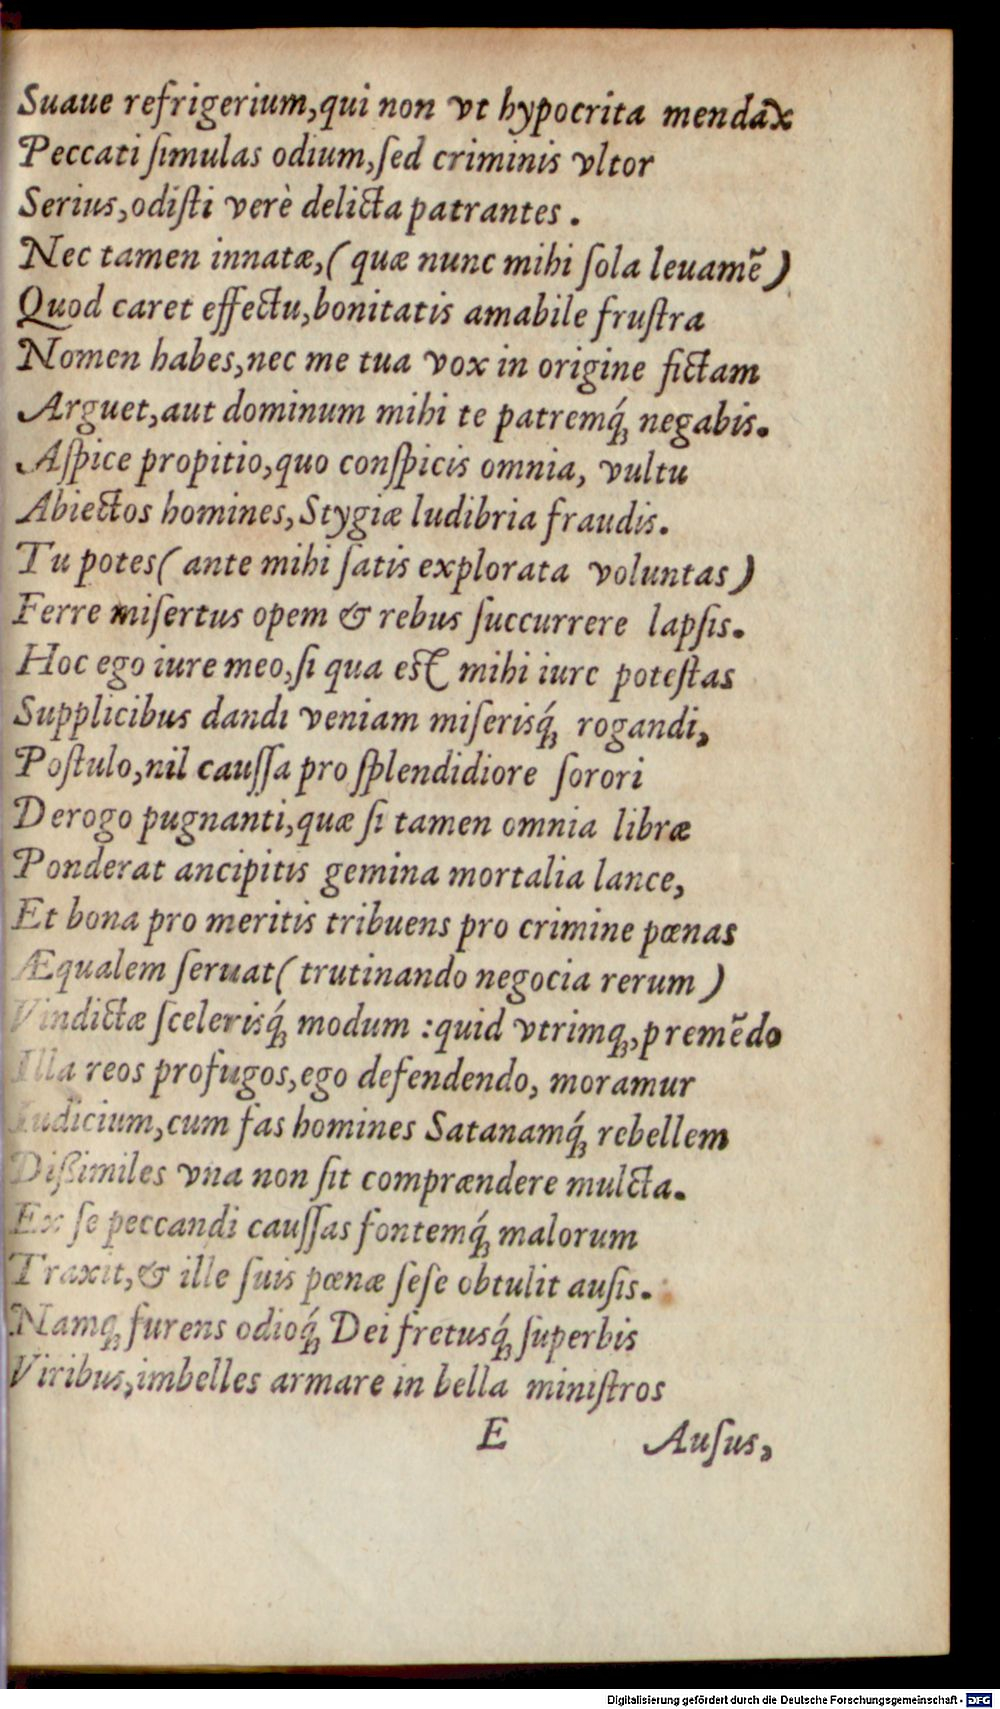 Suaue refrigerium,qui non vt hypocrita mendax
Peccati ſimulas odium,ſed criminis vltor
Serius,odiſti verè delicta patrantes.
Nec tamen innatæ,(quæ nunc mihi ſola leuamẽ)
Quod caret effectu,bonitatis amabile fruſtra
Nomen habes,nec me tua vox in origine fictam
Arguet,aut dominum mihi te patremq́ꝫ negabis.
Aſpice propitio,quo conſpicis omnia, vultu
Abiectos homines,Stygiæ ludibria fraudis.
Tu potes(ante mihi ſatis explorata voluntas)
Ferre miſertus opem & rebus ſuccurrere lapſis.
Hoc ego iure meo,ſi qua eſt mihi iure poteſtas
Supplicibus dandi veniam miſerisq́ꝫ rogandi,
Poſtulo,nil cauſſa pro ſplendidiore ſorori
Derogo pugnanti,quæ ſi tamen omnia libræ
Ponderat ancipitis gemina mortalia lance,
Et bona pro meritis tribuens pro crimine pœnas
Æqualem ſeruat(trutinando negocia rerum)
Vindictæ ſcelerisq́ꝫ modum :quid vtrimqꝫ,premẽdo
Illa reos profugos,ego defendendo, moramur
Iudicium,cum fas homines Satanamq́ꝫ rebellem
Diſsimiles vna non ſit comprændere mulcta.
Ex ſe peccandi cauſſas fontemq́ꝫ malorum
Traxit,& ille ſuis pœnæ ſeſe obtulit auſis.
Namqꝫ furens odioq́ꝫ Dei fretusq́ꝫ ſuperbis
Viribus,imbelles armare in bella miniſtros
E Auſus,
Digitalisierung gefördert durch die Deutsche Forschungsgemeinschaft - DFG